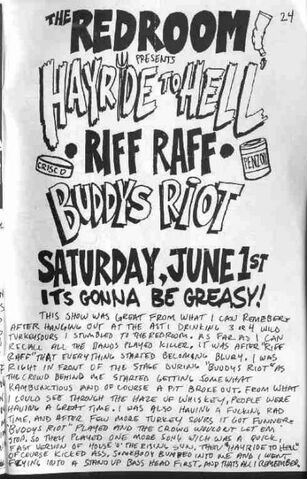 24
THE REDROOM!
PRESENTS
HAYRIDE TO HELL
• RIFF RAFF •
CRISCO
PENZOIL
BUDDYS RIOT
SATURDAY, JUNE 1ST
ITS GONNA BE GREASY!
THIS SHOW WAS GREAT FROM WHAT I CAN REMEBER,
AFTER HANGING OUT AT THE ASTI DRINKING 3 OR 4 WILD
TURKEYSOURS I STUMBLED TO THE REDROOM. AS FAR AS I CAN
RECALL ALL THE BANDS PLAYED KILLER, IT WAS AFTER "RIFF
RAFF" THAT EVERYTHING STARTED BECOMING BLURY. I WAS
RIGHT IN FRONT OF THE STAGE DURING "BUDDYS RIOT" AS
THE CROWD BEHIND ME STARTED GETTING SOMEWHAT
RAMBUNCTIOUS AND OF COURSE A PIT BROKE OUT. FROM WHAT
I COULD SEE THROUGH THE HAZE OF WHISKEY, PEOPLE WERE
HAVING A GREAT TIME. I WAS ALSO HAVING A FUCKING RAD
TIME, AND AFTER FEW MORE TURKEY SOURS IT GOT FUNNERE
"BUDDYS RIOT" PLAYED AND THE CROWD WOULDENT LET EM
STOP, SO THEY PLAYED ONE MORE SONG WICH WAS A QUICK,
FAST VERSION OF HOUSE O' THE RISING SUN, THEN "HAYRIDE TO HELL"
OF COURSE KICKED ASS. SOMEBODY BUMBED INTO ME AND I WENT
FLYING INTO A STAND UP BASS HEAD FIRST, AND THATS ALL I REMEMBER.